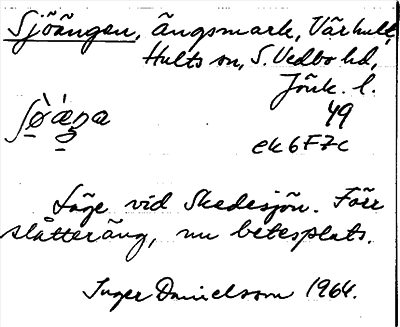 Sjöängen, Ängsmark, Vårhult,
Hults sn, S. Vedbo hd,
Jönk. l.
49
ek 6F7c
Läge vid Skedesjön. Förr
slåtteräng, nu betesplats.
Inger Danielsson 1964.